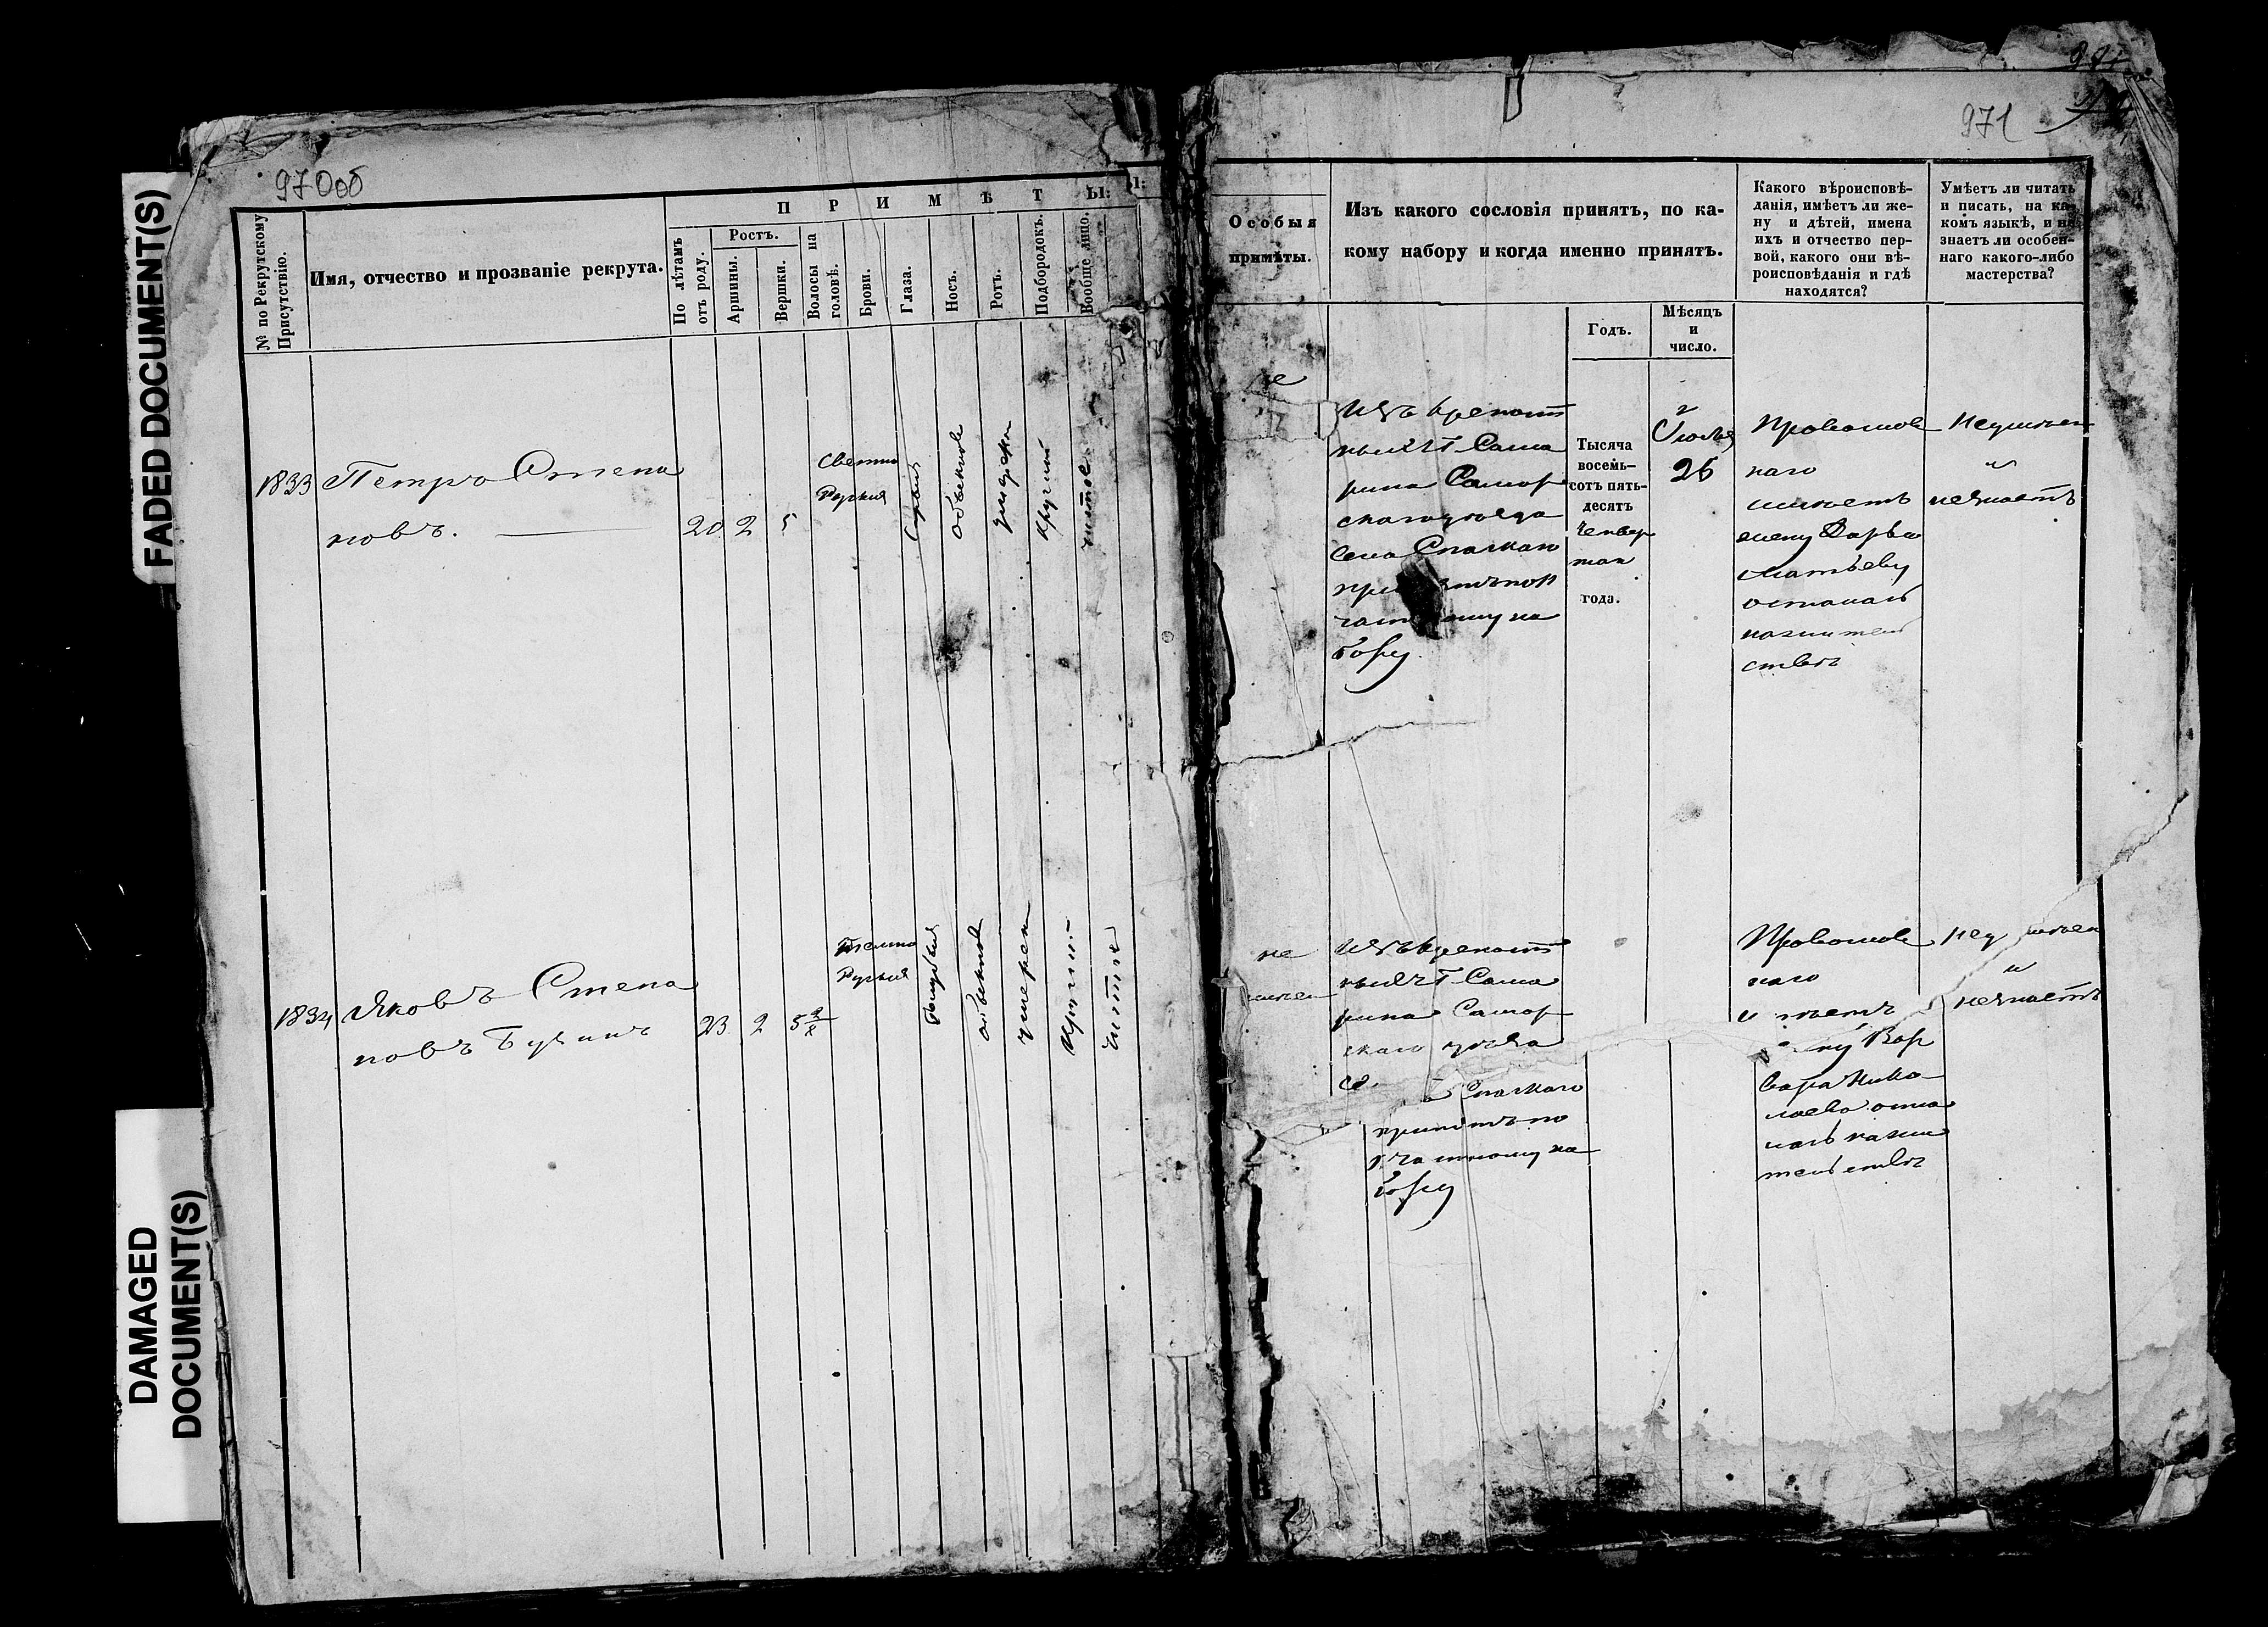 FADED DOCUMENT(S)
DAMAGED
DOCUMENT(S)
970об
П Р И М Ѣ Т Ы:
№ по Рекрутскому
Присутствію.
Имя, отчество и прозваніе рекрута.
По лѣтамъ
отъ роду.
Ростъ.
Аршины.
Вершки.
Волосы на
головѣ.
Брови.
Глаза.
Носъ.
Ротъ.
Подбородокъ.
Вообще лицо.
1833
Петръ Степа
новъ.
20 2 5
Светло
Русыя
Серыя
умерен
круглый
чистое
1834
Яковъ Степа
новъ
23 2 5
Русыя
Голубыя
умерен
чистое
971
Особыя
примѣты.
Изъ какого сословія принятъ, по ка-
кому набору и когда именно принятъ.
Годъ.
Мѣсяцъ
и
число.
Какого вѣроисповѣ-
данія, имѣетъ ли же-
ну и дѣтей, имена
ихъ и отчество пер-
вой, какого они вѣ-
роисповѣданія и гдѣ
находятся?
Умѣетъ ли читать
и писать, на ка-
комъ языкѣ, и не
знаетъ ли особен-
наго какого-либо
мастерства?
не
Изъ крепост
ныхъ Сама
рина Самар
скаго уезда
Села Спаскаго
част ному на
бору
Тысяча
восемь-
сотъ пять-
десятъ
четвер
таго
года.
Іюля
26
Православ
наго
имеетъ
жену Дарью
Матвеву
осталась
на жител
стве
Неумеет
и
незнаетъ
не
имеет
Изъ крепост
ныхъ Сама
рина Самар
скаго уезда
Спаскаго
принятъ по
частному на
бору
Православ
наго
имеетъ
жену Вар
вара Нико
лаева оста
лась на жи
тельстве
неумеет
и
незнаетъ